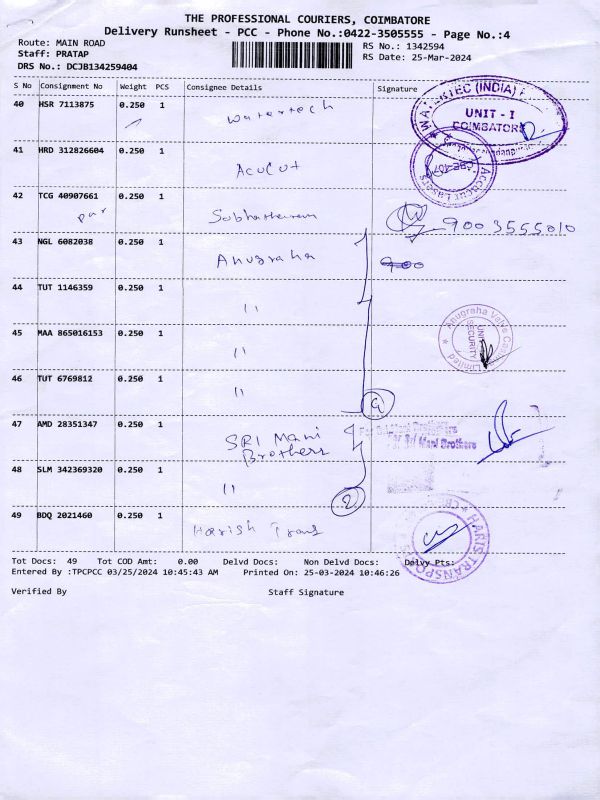 THE PROFESSIONAL COURIERS, COIMBATORE
Delivery Runsheet - PCC - Phone No.:0422-3505555 - Page No.:4
Route: MAIN ROAD
Staff: PRATAP
DRS No.: DCJB134259404
RS No.: 1342594
RS Date: 25-Mar-2024
S No Consignment No Weight PCS Consignee Details Signature
40 HSR 7113875 0.250 1 Watertech
WATERTEC (INDIA) P
UNIT - I
COIMBATORE
41 HRD 312826604 0.250 1 Acucut
Accucut Lasers
42 TCG 40907661 0.250 1 Subhatharam 9003555010
43 NGL 6082038 0.250 1 Anugraha 900
44 TUT 1146359 0.250 1 "
45 MAA 865016153 0.250 1 "
Anugraha Valve Castings Limited
UNIT
SECURITY
46 TUT 6769812 0.250 1 "
4
47 AMD 28351347 0.250 1 SRI Mani Brothers
For Sri Mani Brothers
For Sri Mani Brothers
48 SLM 342369320 0.250 1 "
2
49 BDQ 2021460 0.250 1 Harish Trans
HARIS TRANSPO
Tot Docs: 49 Tot COD Amt: 0.00 Delvd Docs: Non Delvd Docs: Delvy Pts:
Entered By :TPCPCC 03/25/2024 10:45:43 AM Printed On: 25-03-2024 10:46:26
Verified By Staff Signature